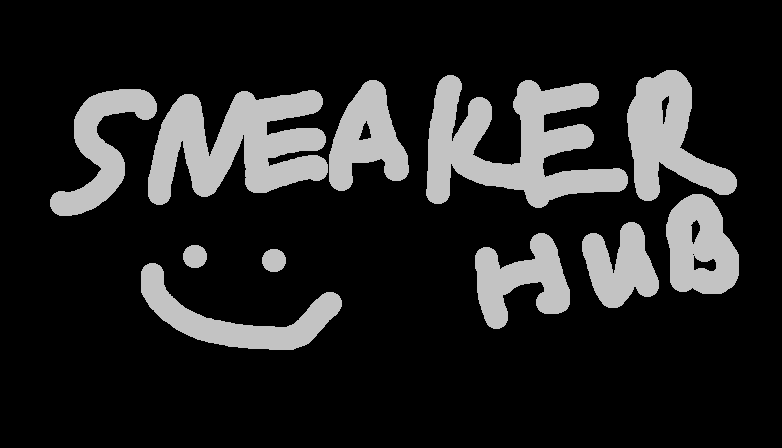 SNEAKER
HUB